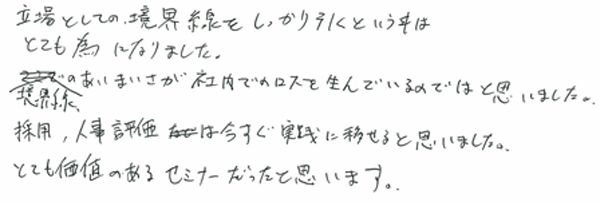 立場としての境界線をしっかり引くという事は
とても為になりました。
境界線のあいまいさが社内でのロスを生んでいるのではと思いました。
採用、人事評価は今すぐ実践に移せると思いました。
とても価値のあるセミナーだったと思います。